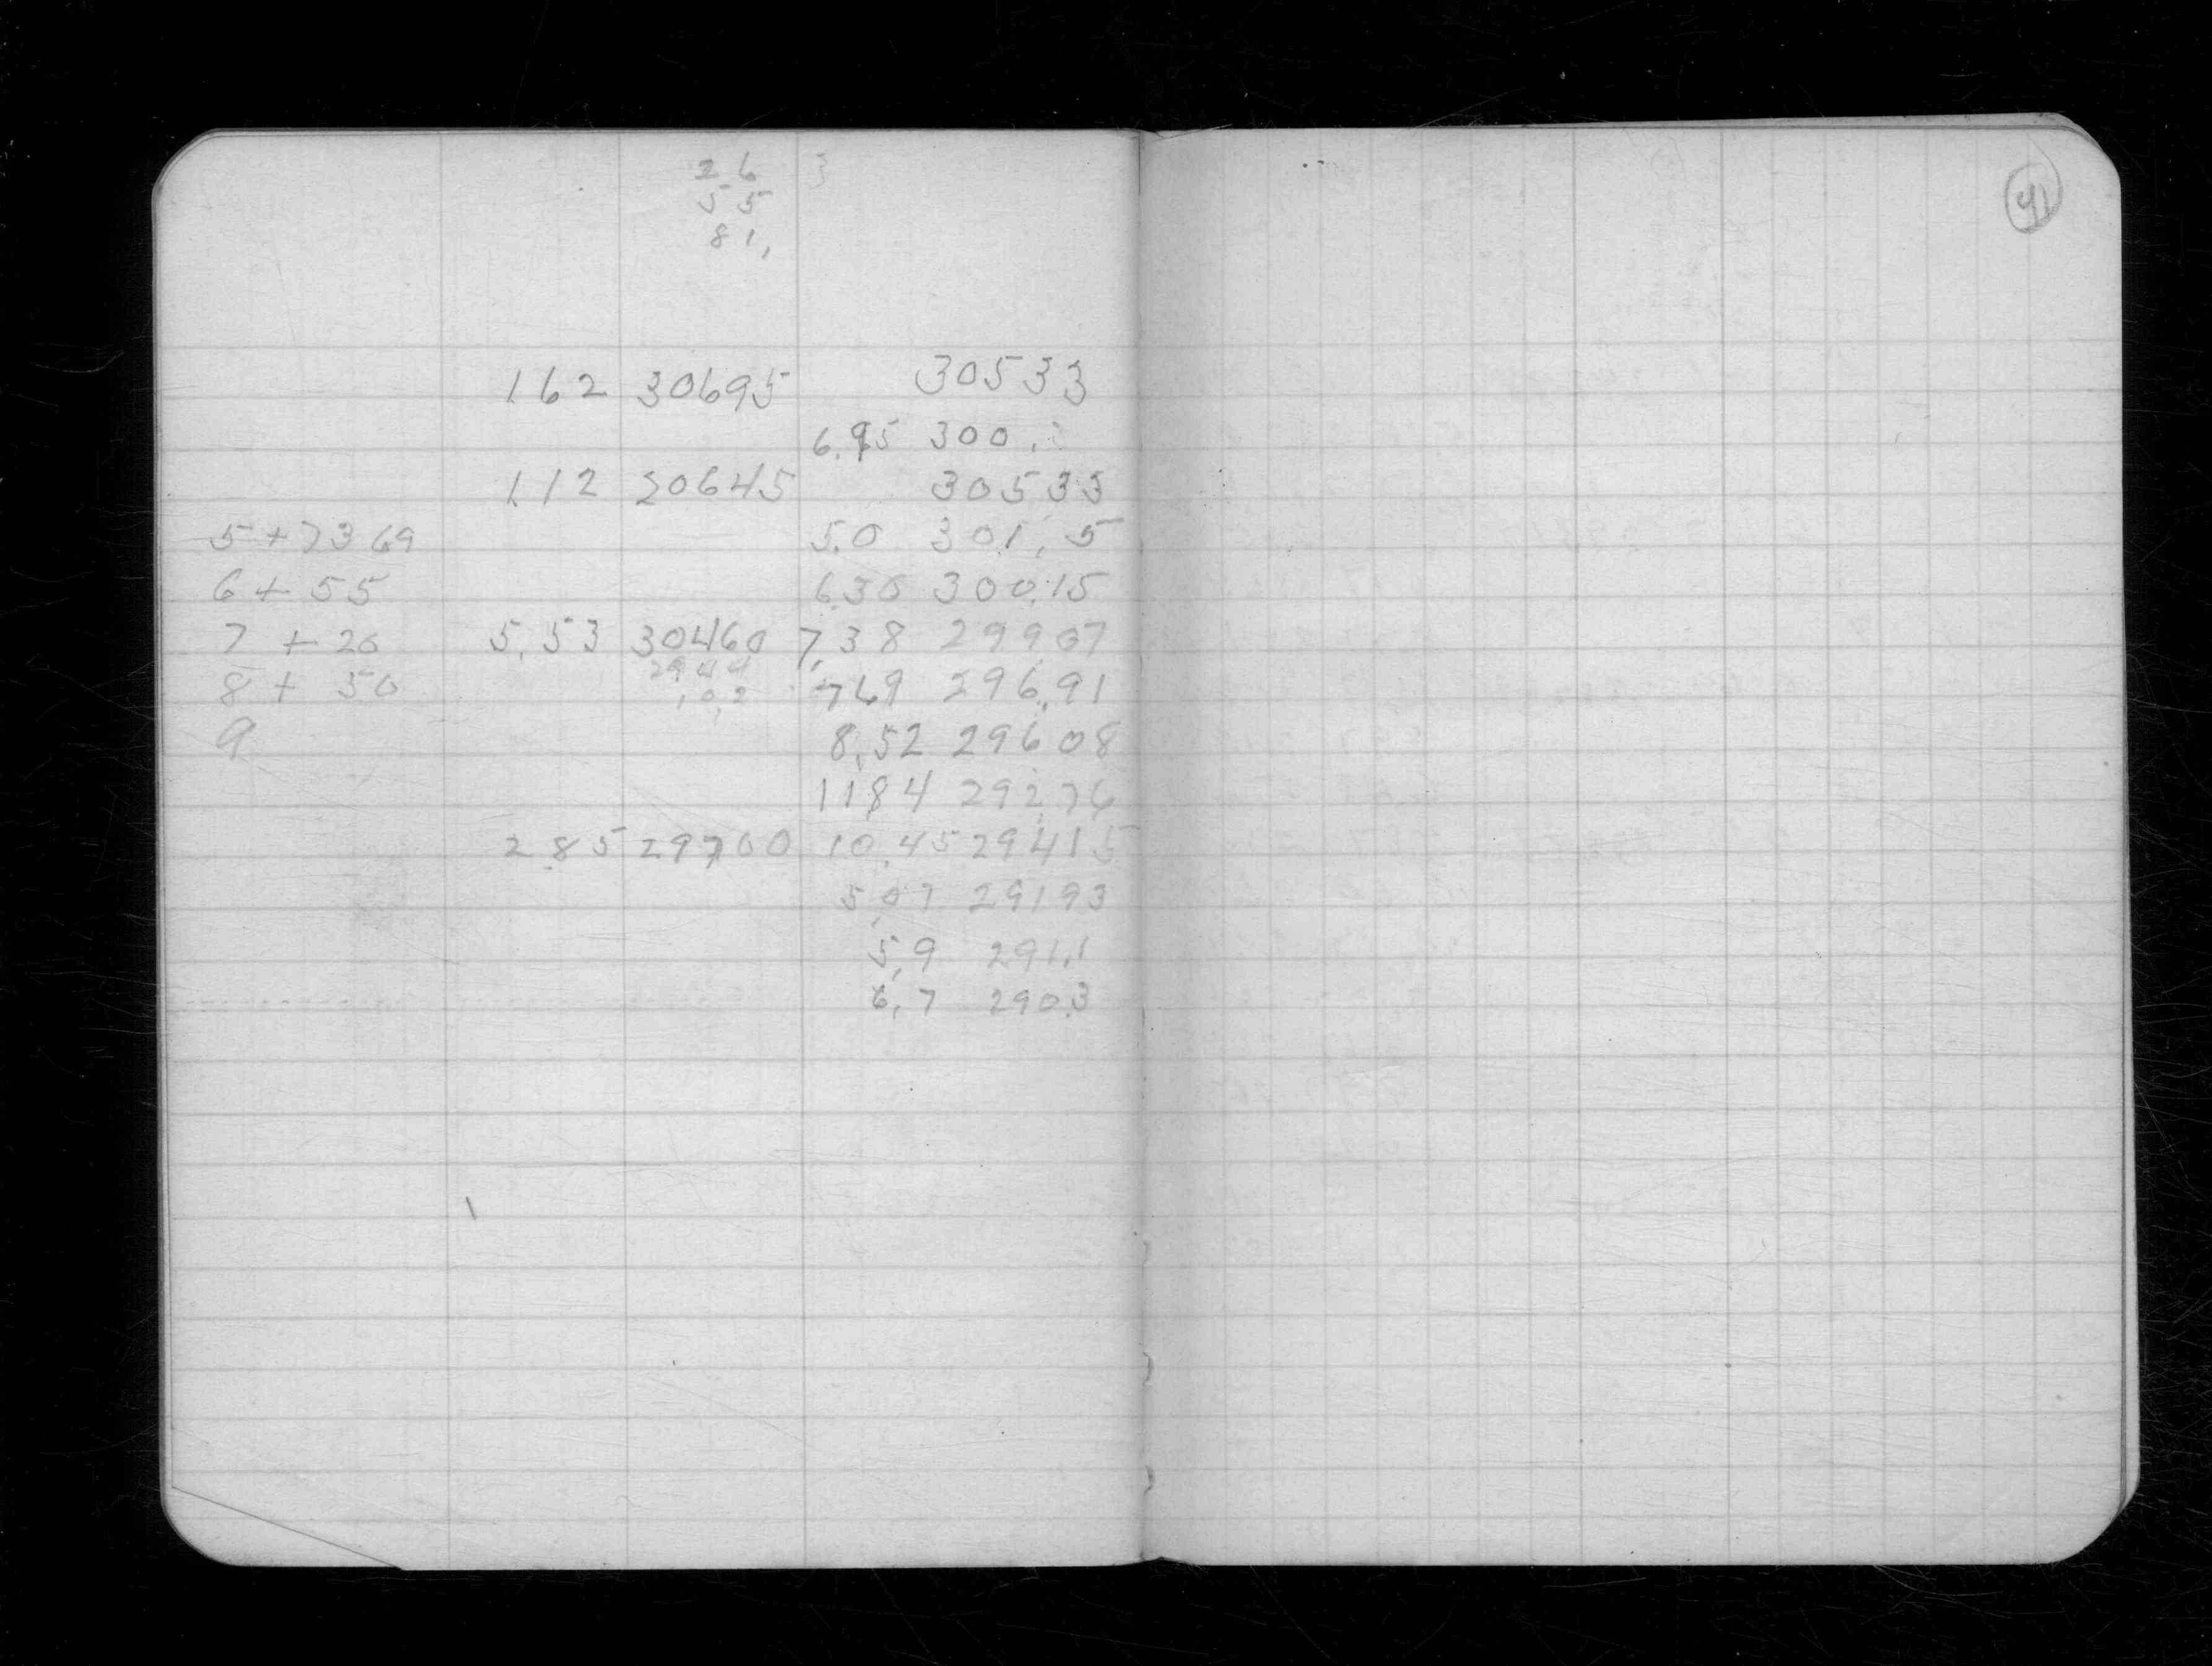 26
55
81,
41
30533
1.62 30695
6.95 300.
1.12 30645 30533
5+73 69 5.0 301.5
6+ 55 6.30 300.15
7 + 20 5.53 30460 7.38 29907
8 + 50 7.69 296.91
9 8.52 29608
1184 292.76
2.85 29700 10.45 29415
5.07 29193
5.9 291.1
6.7 290.3